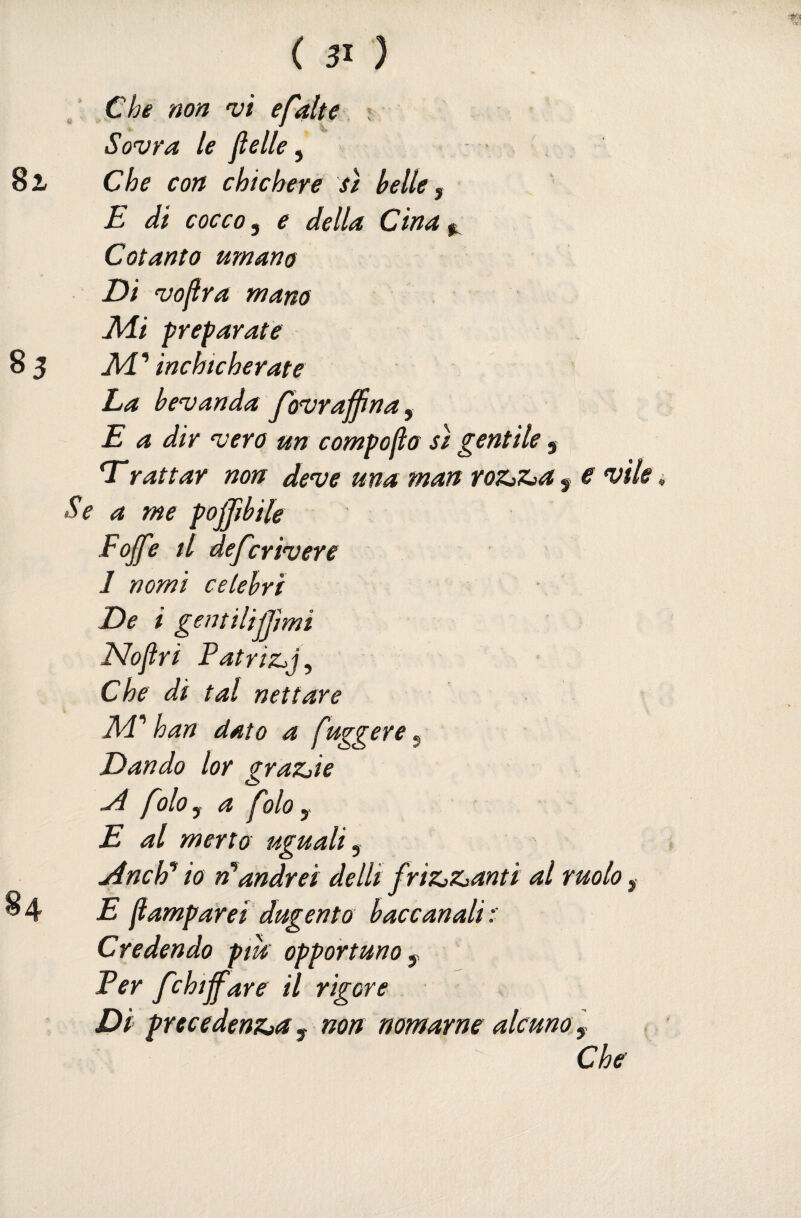 ( 31 )
Che non vi eſalte
Sovra le ſtelle,
82 Che con chichere sì belle,
E di cocco, e della Cina,
Cotanto umano
Di voſtra mano
Mi preparate
83 M' inchicherate
La bevanda ſovraffina,
E a dir vero un compoſto sì gentile,
Trattar non deve una man rozza, e vile.
Se a me poſſibile
Foſſe il deſcrivere
I nomi celebri
De i gentiliſſimi
Noſtri Patrizj,
Che di tal nettare
M' han dato a ſuggere,
Dando lor grazie
A ſolo, a ſolo,
E al merto uguali,
Anch' io n'andrei delli frizzanti al ruolo,
84 E ſtamparei dugento baccanali:
Credendo più opportuno,
Per ſchiffare il rigore
Di precedenza, non nomarne alcuno,
Che